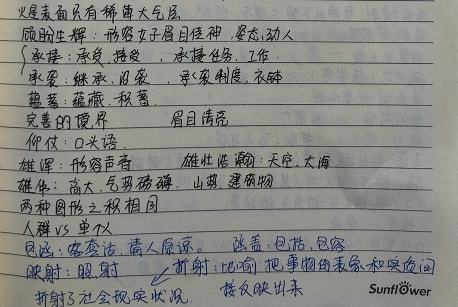 火星表面只有稀薄大气层
顾盼生辉：形容女子眉目传神、姿态动人
承接：承受、接受，承接任务、工作
承袭：继承、沿袭，承袭制度、衣钵
蕴蓄：蕴藏、积蓄
完善的境界 眉目清亮
仰仗：口头语
雄浑：形容声音 雄壮浩瀚：天空、大海
雄伟：高大、气势磅礴，山势、建筑物
两种图形之积相同
人群VS单个
包涵：客套话，请人原谅。 涵盖：包括、包容
映射：照射 折射：比喻 把事物的表象和实质间
折射了社会现实状况 接反映出来
Sunflower